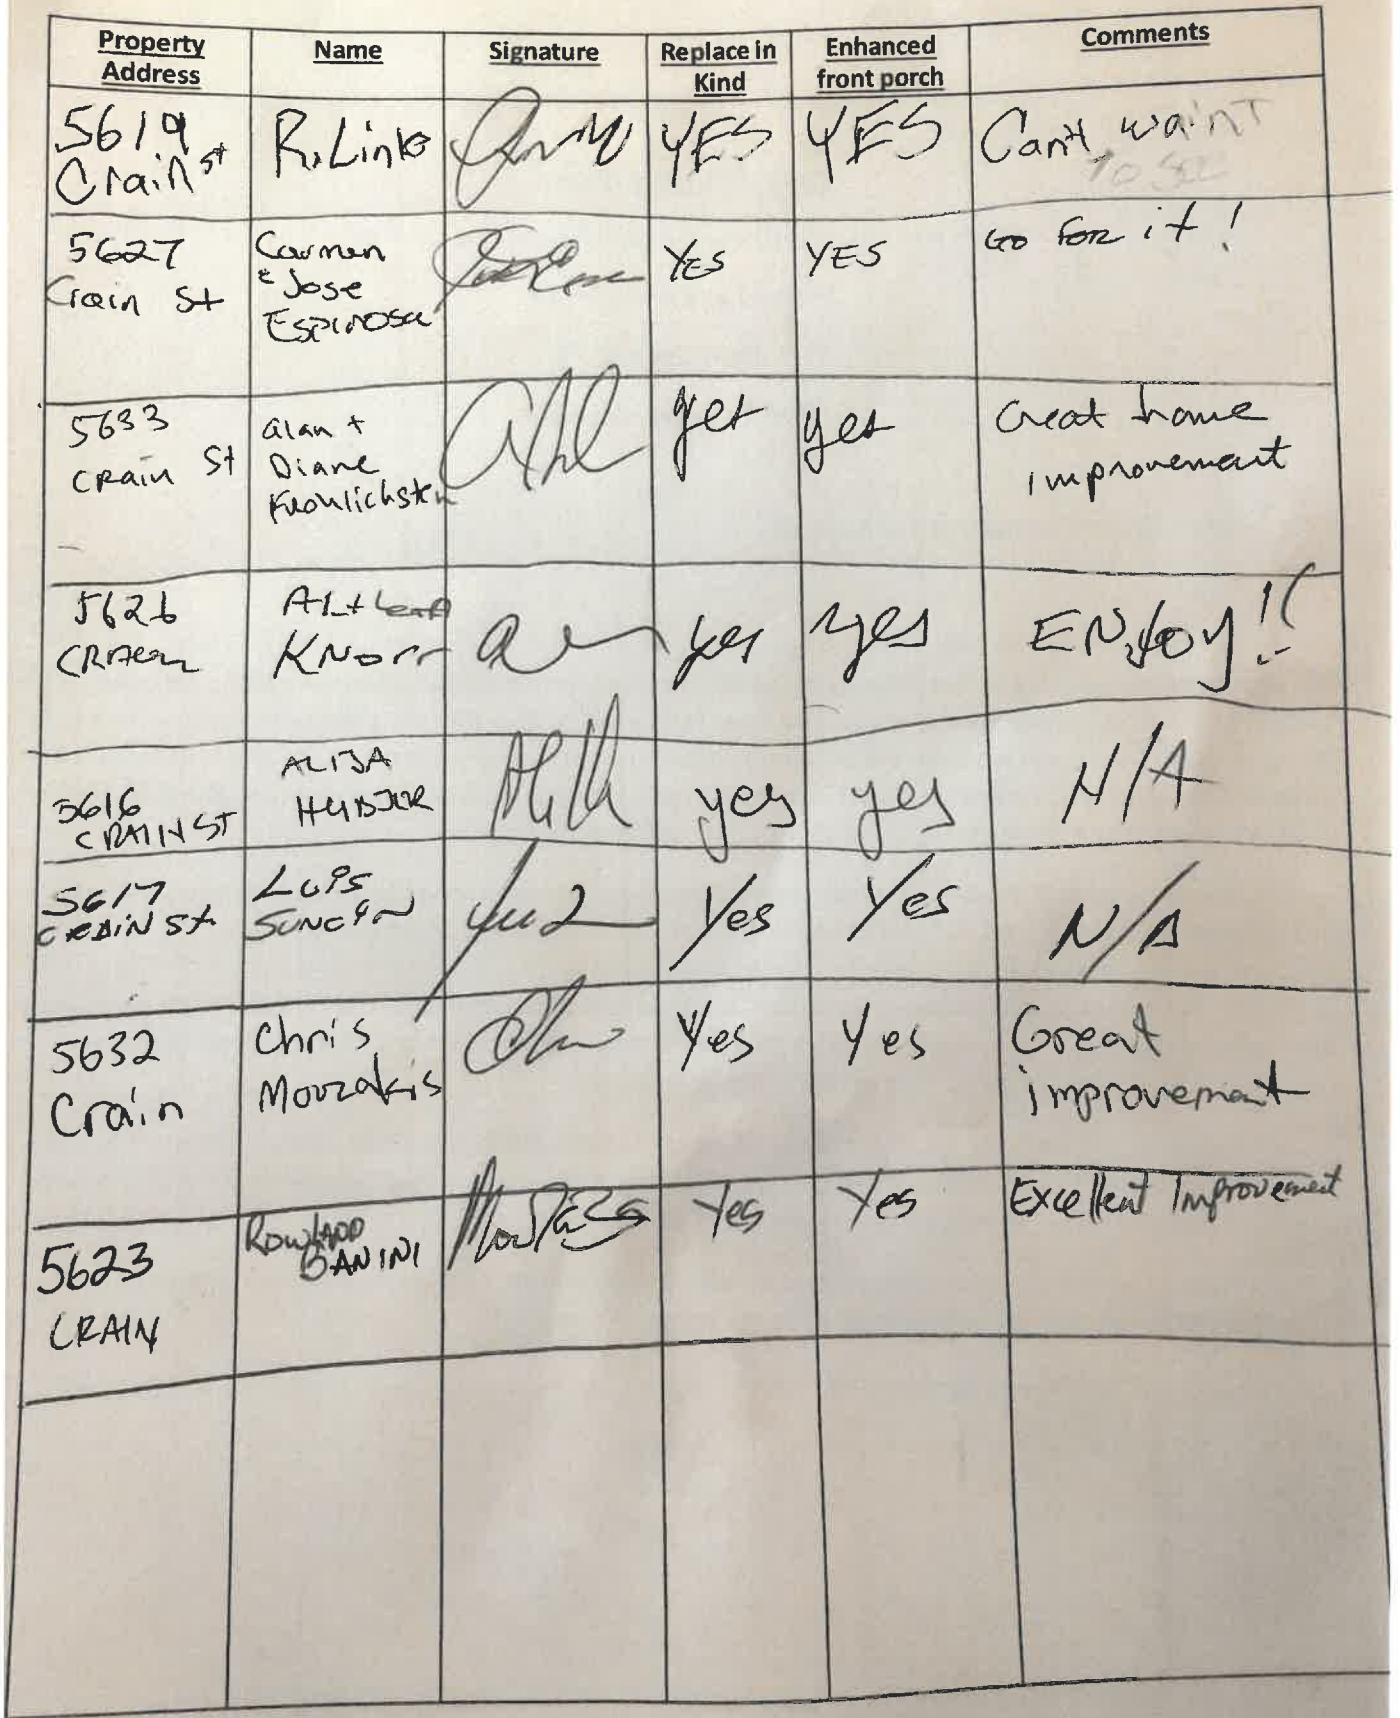 Property Address
Name
Signature
Replace in Kind
Enhanced front porch
Comments
5619
Crain St
R. Link
YES
YES
Can't waint
to see
5627
Crain St
Carmen
& Jose
Espinosa
YES
YES
Go For it!
5633
Crain St
Alan +
Diane
yes
yes
Great home
improvement
5626
Knorr
yes
yes
ENJOY!!
5616
CRAIN ST
ALIJA
yes
yes
N/A
5617
CRAIN St
Luis
Yes
Yes
N/A
5632
Crain
Chris
Mourzakis
Yes
Yes
Great
improvement
5623
CRAIN
ROWLAND
BANINI
Yes
Yes
Excellent Improvement